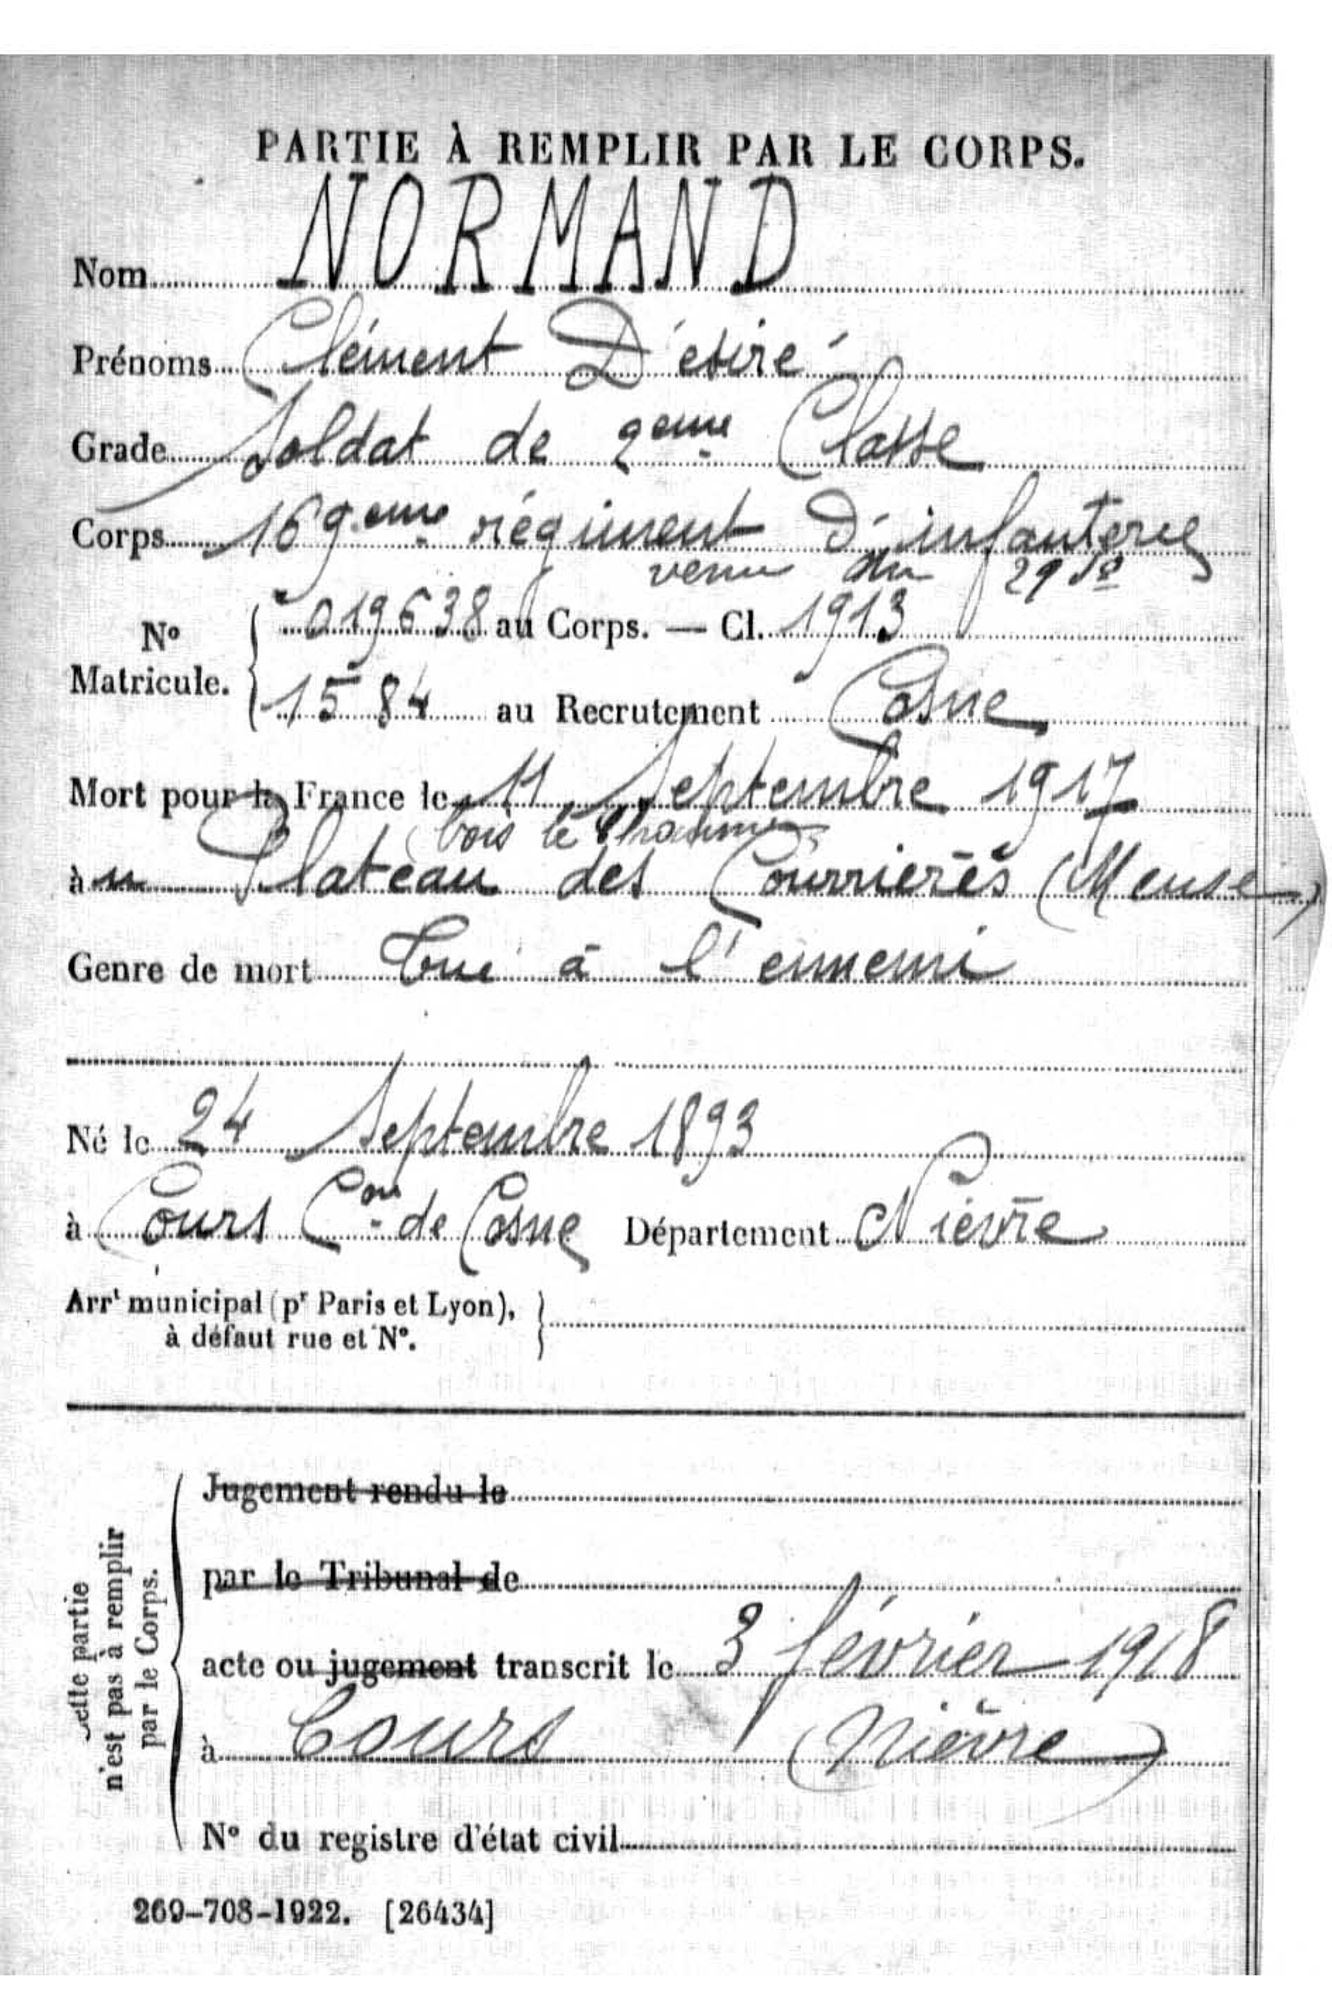 PARTIE À REMPLIR PAR LE CORPS.
Nom NORMAND
Prénoms Clément Désiré
Grade Soldat de 2eme Classe
Corps 169eme régiment D'infanterie
venu du 29 do
No Matricule. 019638 au Corps. — Cl. 1913
1584 au Recrutement Cosne
Mort pour la France le 11 Septembre 1917
bois le
à u Plateau des Courrières (Meuse)
Genre de mort Tué à l'ennemi
Né le 24 Septembre 1893
à Cours Con de Cosne Département Nièvre
Arrt municipal (pr Paris et Lyon),
à défaut rue et No.
Cette partie
n'est pas à remplir
par le Corps.
Jugement rendu le
par le Tribunal de
acte ou jugement transcrit le 3 février 1918
à Cours (Nièvre)
No du registre d'état civil
269-708-1922. [26434]